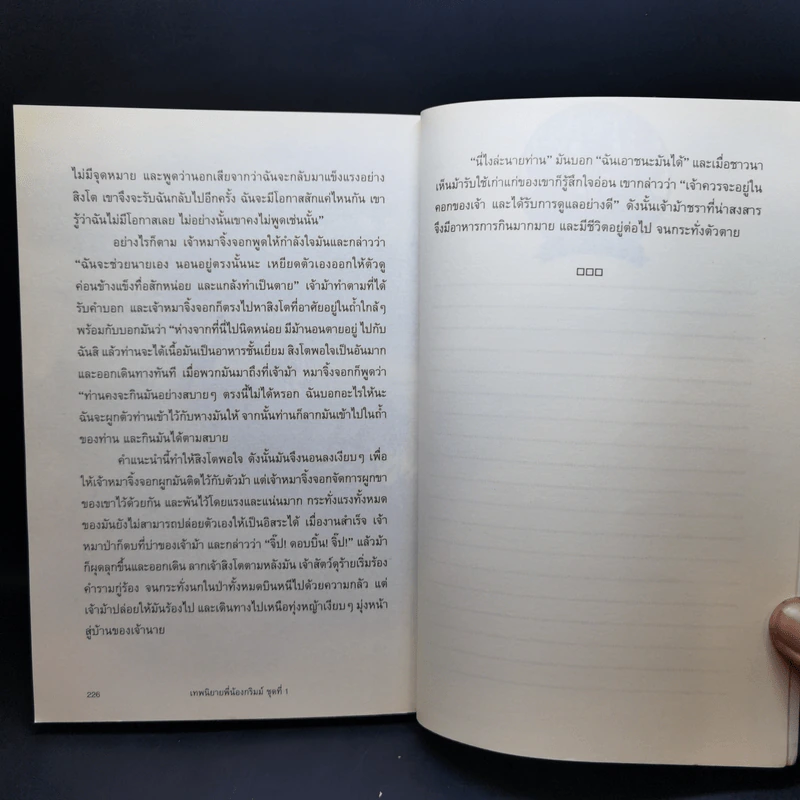 ไม่มีจุดหมาย และพูดว่านอกเสียจากว่าฉันจะกลับมาแข็งแรงอย่าง
สิงโต เขาจึงจะรับฉันกลับไปอีกครั้ง ฉันจะมีโอกาสสักแค่ไหนกัน เขา
รู้ว่าฉันไม่มีโอกาสเลย ไม่อย่างนั้นเขาคงไม่พูดเช่นนั้น”
อย่างไรก็ตาม เจ้าหมาจิ้งจอกพูดให้กำลังใจมันและกล่าวว่า
“ฉันจะช่วยนายเอง นอนอยู่ตรงนั้นนะ เหยียดตัวเองออกให้ตัวดู
ค่อนข้างแข็งทื่อสักหน่อย และแกล้งทำเป็นตาย” เจ้าม้าทำตามที่ได้
รับคำบอก และเจ้าหมาจิ้งจอกก็ตรงไปหาสิงโตที่อาศัยอยู่ในถ้ำใกล้ๆ
พร้อมกับบอกมันว่า “ห่างจากที่นี่ไปนิดหน่อย มีม้านอนตายอยู่ ไปกับ
ฉันสิ แล้วท่านจะได้เนื้อมันเป็นอาหารชั้นเยี่ยม สิงโตพอใจเป็นอันมาก
และออกเดินทางทันที เมื่อพวกมันมาถึงที่เจ้าม้า หมาจิ้งจอกก็พูดว่า
“ท่านคงจะกินมันอย่างสบายๆ ตรงนี้ไม่ได้หรอก ฉันบอกอะไรให้นะ
ฉันจะผูกตัวท่านเข้าไว้กับหางมันให้ จากนั้นท่านก็ลากมันเข้าไปในถ้ำ
ของท่าน และกินมันได้ตามสบาย
คำแนะนำนี้ทำให้สิงโตพอใจ ดังนั้นมันจึงนอนลงเงียบๆ เพื่อ
ให้เจ้าหมาจิ้งจอกผูกมันติดไว้กับตัวม้า แต่เจ้าหมาจิ้งจอกจัดการผูกขา
ของเขาไว้ด้วยกัน และพันไว้โดยแรงและแน่นมาก กระทั่งแรงทั้งหมด
ของมันยังไม่สามารถปล่อยตัวเองให้เป็นอิสระได้ เมื่องานสำเร็จ เจ้า
หมาป่าก็ตบที่บ่าของเจ้าม้า และกล่าวว่า “จิ๊ป! ดอบบิ้น! จิ๊ป!” แล้วม้า
ก็ผุดลุกขึ้นและออกเดิน ลากเจ้าสิงโตตามหลังมัน เจ้าสัตว์ดุร้ายเริ่มร้อง
คำรามกู่ร้อง จนกระทั่งนกในป่าทั้งหมดบินหนีไปด้วยความกลัว แต่
เจ้าม้าปล่อยให้มันร้องไป และเดินทางไปเหนือทุ่งหญ้าเงียบๆ มุ่งหน้า
สู่บ้านของเจ้านาย
226 เทพนิยายพี่น้องกริมม์ ชุดที่ 1
“นี่ไงล่ะนายท่าน” มันบอก “ฉันเอาชนะมันได้” และเมื่อชาวนา
เห็นม้ารับใช้เก่าแก่ของเขาก็รู้สึกใจอ่อน เขากล่าวว่า “เจ้าควรจะอยู่ใน
คอกของเจ้า และได้รับการดูแลอย่างดี” ดังนั้นเจ้าม้าชราที่น่าสงสาร
จึงมีอาหารการกินมากมาย และมีชีวิตอยู่ต่อไป จนกระทั่งตัวตาย